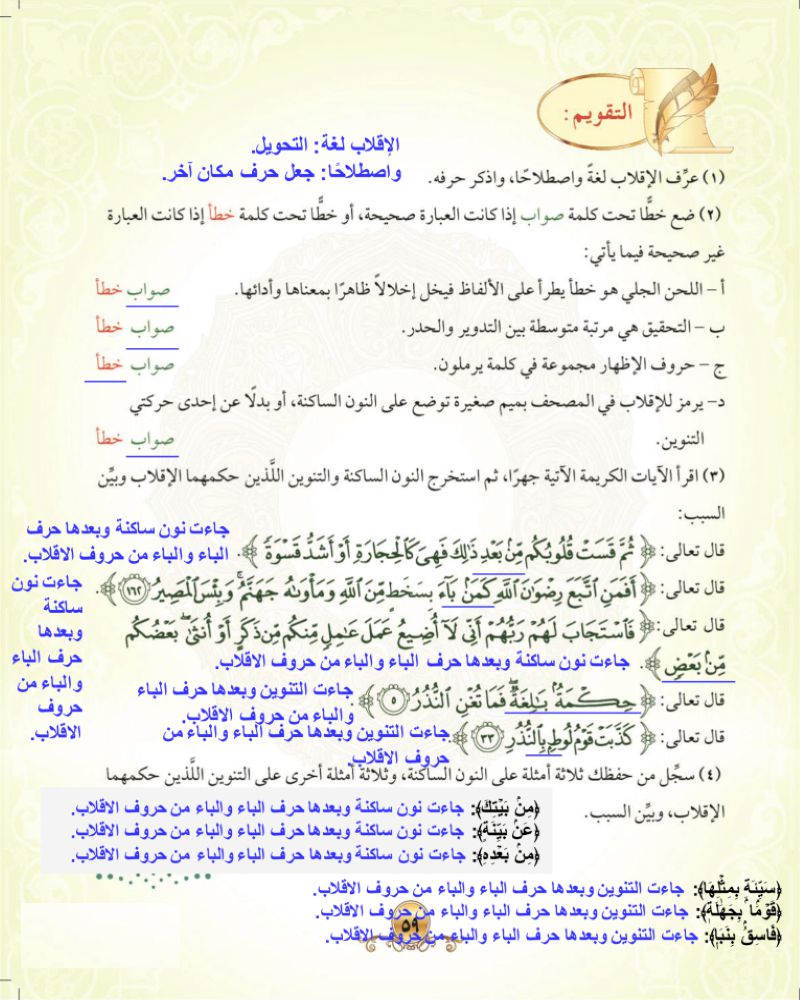 التقويم:
الإقلاب لغة: التحويل.
واصطلاحًا: جعل حرف مكان آخر.
(١) عرِّف الإقلاب لغةً واصطلاحًا، واذكر حرفه.
(٢) ضع خطًّا تحت كلمة صواب إذا كانت العبارة صحيحة، أو خطًّا تحت كلمة خطأ إذا كانت العبارة
غير صحيحة فيما يأتي:
أ – اللحن الجلي هو خطأ يطرأ على الألفاظ فيخل إخلالاً ظاهرًا بمعناها وأدائها. صواب خطأ
ب – التحقيق هي مرتبة متوسطة بين التدوير والحدر. صواب خطأ
ج – حروف الإظهار مجموعة في كلمة يرملون. صواب خطأ
د– يرمز للإقلاب في المصحف بميم صغيرة توضع على النون الساكنة، أو بدلًا عن إحدى حركتي
التنوين. صواب خطأ
(٣) اقرأ الآيات الكريمة الآتية جهرًا، ثم استخرج النون الساكنة والتنوين اللَّذين حكمهما الإقلاب وبيِّن
السبب:
جاءت نون ساكنة وبعدها حرف
الباء والباء من حروف الاقلاب.
قال تعالى: ﴿ ثُمَّ قَسَتْ قُلُوبُكُم مِّنۢ بَعْدِ ذَٰلِكَ فَهِىَ كَٱلْحِجَارَةِ أَوْ أَشَدُّ قَسْوَةً ﴾.
قال تعالى: ﴿ أَفَمَنِ ٱتَّبَعَ رِضْوَٰنَ ٱللَّهِ كَمَنۢ بَآءَ بِسَخَطٍ مِّنَ ٱللَّهِ وَمَأْوَىٰهُ جَهَنَّمُ ۚ وَبِئْسَ ٱلْمَصِيرُ ١٦٢ ﴾.
جاءت نون
ساكنة
وبعدها
حرف الباء
والباء من
حروف
الاقلاب.
قال تعالى: ﴿ فَٱسْتَجَابَ لَهُمْ رَبُّهُمْ أَنِّى لَآ أُضِيعُ عَمَلَ عَٰمِلٍ مِّنكُم مِّن ذَكَرٍ أَوْ أُنثَىٰ ۖ بَعْضُكُم
مِّنۢ بَعْضٍ ﴾. جاءت نون ساكنة وبعدها حرف الباء والباء من حروف الاقلاب.
قال تعالى: ﴿ حِكْمَةٌۢ بَٰلِغَةٌ ۖ فَمَا تُغْنِ ٱلنُّذُرُ ٥ ﴾ جاءت التنوين وبعدها حرف الباء
والباء من حروف الاقلاب.
قال تعالى: ﴿ كَذَّبَتْ قَوْمُ لُوطٍۭ بِٱلنُّذُرِ ٣٣ ﴾. جاءت التنوين وبعدها حرف الباء والباء من
حروف الاقلاب.
(٤) سجِّل من حفظك ثلاثة أمثلة على النون الساكنة، وثلاثة أمثلة أخرى على التنوين اللَّذين حكمهما
الإقلاب، وبيِّن السبب.
﴿مِنۢ بَيْتِكَ﴾: جاءت نون ساكنة وبعدها حرف الباء والباء من حروف الاقلاب.
﴿عَنۢ بَيِّنَةٍ﴾: جاءت نون ساكنة وبعدها حرف الباء والباء من حروف الاقلاب.
﴿مِنۢ بَعْدِهِ﴾: جاءت نون ساكنة وبعدها حرف الباء والباء من حروف الاقلاب.
﴿سَيِّئَةٍۭ بِمِثْلِهَا﴾: جاءت التنوين وبعدها حرف الباء والباء من حروف الاقلاب.
﴿قَوْمًۢا بِجَهَٰلَةٍ﴾: جاءت التنوين وبعدها حرف الباء والباء من حروف الاقلاب.
﴿فَاسِقٌۢ بِنَبَإٍ﴾: جاءت التنوين وبعدها حرف الباء والباء من حروف الاقلاب.
٥٩